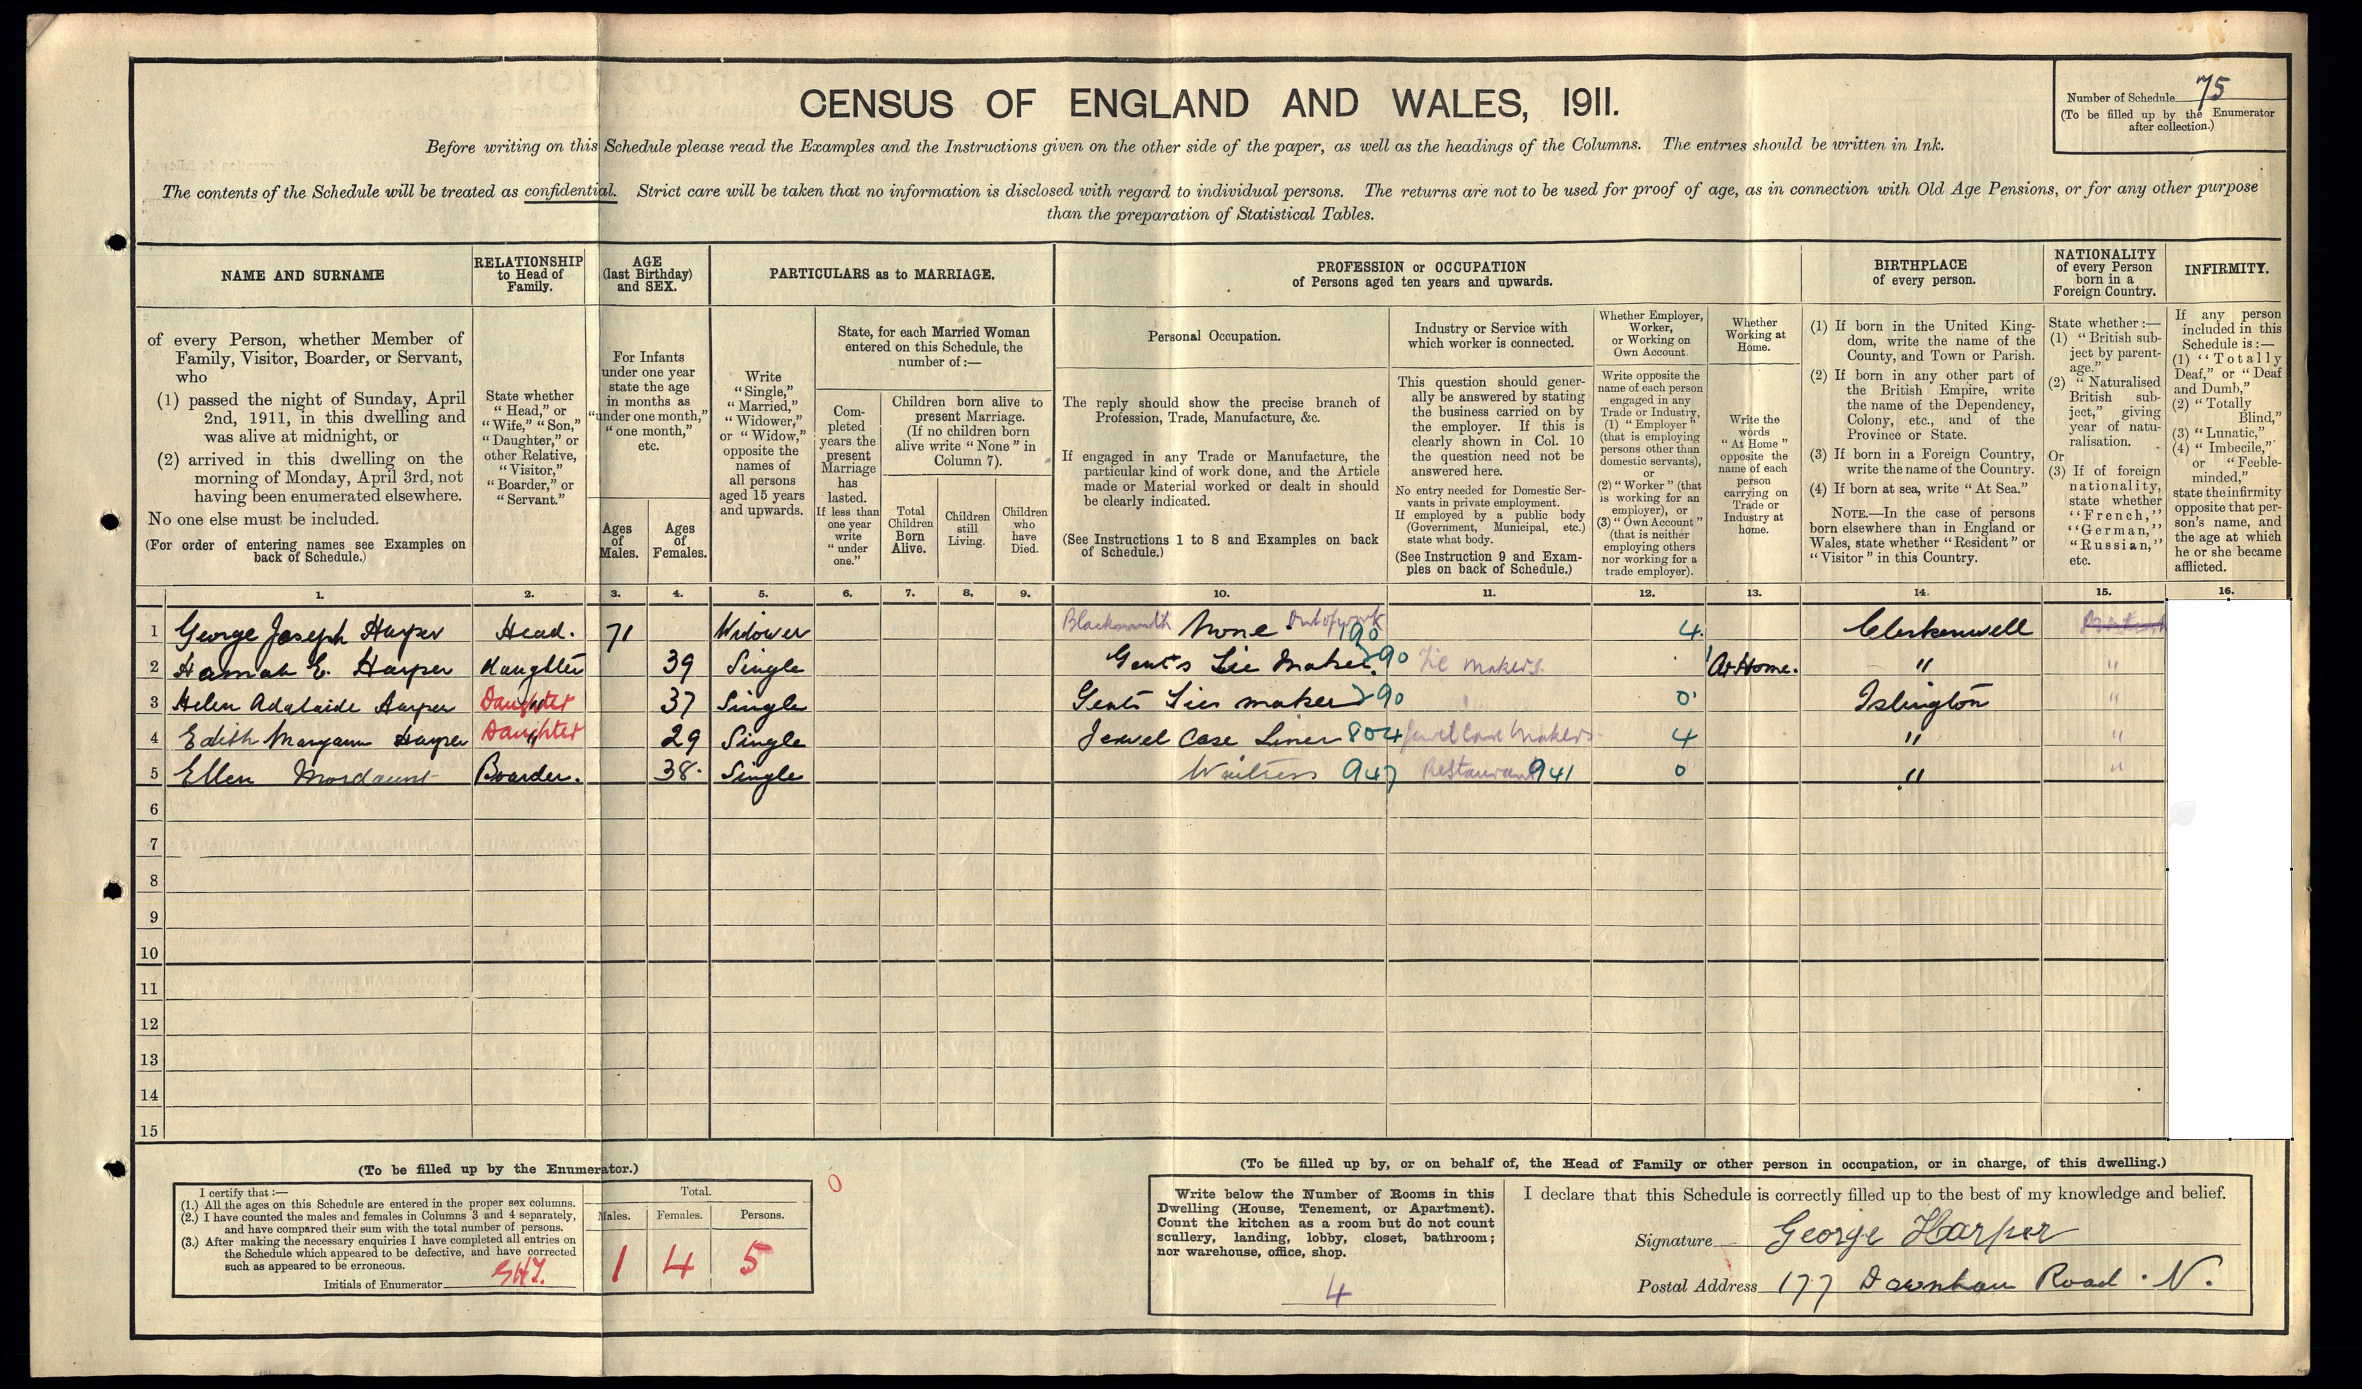 CENSUS OF ENGLAND AND WALES, 1911.
Number of Schedule 75
(To be filled up by the Enumerator
after collection.)
Before writing on this Schedule please read the Examples and the Instructions given on the other side of the paper, as well as the headings of the Columns. The entries should be written in Ink.
The contents of the Schedule will be treated as confidential. Strict care will be taken that no information is disclosed with regard to individual persons. The returns are not to be used for proof of age, as in connection with Old Age Pensions, or for any other purpose
than the preparation of Statistical Tables.
NAME AND SURNAME
of every Person, whether Member of
Family, Visitor, Boarder, or Servant,
who
(1) passed the night of Sunday, April
2nd, 1911, in this dwelling and
was alive at midnight, or
(2) arrived in this dwelling on the
morning of Monday, April 3rd, not
having been enumerated elsewhere.
No one else must be included.
(For order of entering names see Examples on
back of Schedule.)
RELATIONSHIP
to Head of
Family.
State whether
"Head," or
"Wife," "Son,"
"Daughter," or
other Relative,
"Visitor,"
"Boarder," or
"Servant."
AGE
(last Birthday)
and SEX.
For Infants
under one year
state the age
in months as
"under one month,"
"one month,"
etc.
Ages
of
Males.
Ages
of
Females.
PARTICULARS as to MARRIAGE.
Write
"Single,"
"Married,"
"Widower,"
or "Widow,"
opposite the
names of
all persons
aged 15 years
and upwards.
State, for each Married Woman
entered on this Schedule, the
number of:—
Com-
pleted
years the
present
Marriage
has
lasted.
If less than
one year
write
"under
one."
Children born alive to
present Marriage.
(If no children born
alive write "None" in
Column 7).
Total
Children
Born
Alive.
Children
still
Living.
Children
who
have
Died.
PROFESSION or OCCUPATION
of Persons aged ten years and upwards.
Personal Occupation.
The reply should show the precise branch of
Profession, Trade, Manufacture, &c.
If engaged in any Trade or Manufacture, the
particular kind of work done, and the Article
made or Material worked or dealt in should
be clearly indicated.
(See Instructions 1 to 8 and Examples on back
of Schedule.)
Industry or Service with
which worker is connected.
This question should gener-
ally be answered by stating
the business carried on by
the employer. If this is
clearly shown in Col. 10
the question need not be
answered here.
No entry needed for Domestic Ser-
vants in private employment.
If employed by a public body
(Government, Municipal, etc.)
state what body.
(See Instruction 9 and Exam-
ples on back of Schedule.)
Whether Employer,
Worker,
or Working on
Own Account.
Write opposite the
name of each person
engaged in any
Trade or Industry,
(1) "Employer"
(that is employing
persons other than
domestic servants),
or
(2) "Worker" (that
is working for an
employer), or
(3) "Own Account"
(that is neither
employing others
nor working for a
trade employer).
Whether
Working at
Home.
Write the
words
"At Home"
opposite the
name of each
person
carrying on
Trade or
Industry at
home.
BIRTHPLACE
of every person.
(1) If born in the United King-
dom, write the name of the
County, and Town or Parish.
(2) If born in any other part of
the British Empire, write
the name of the Dependency,
Colony, etc., and of the
Province or State.
(3) If born in a Foreign Country,
write the name of the Country.
(4) If born at sea, write "At Sea."
NOTE.—In the case of persons
born elsewhere than in England or
Wales, state whether "Resident" or
"Visitor" in this Country.
NATIONALITY
of every Person
born in a
Foreign Country.
State whether:—
(1) "British sub-
ject by parent-
age."
(2) "Naturalised
British sub-
ject," giving
year of natu-
ralisation.
Or
(3) If of foreign
nationality,
state whether
"French,"
"German,"
"Russian,"
etc.
INFIRMITY.
If any person
included in this
Schedule is:—
(1) "Totally
Deaf," or "Deaf
and Dumb,"
(2) "Totally
Blind,"
(3) "Lunatic,"
(4) "Imbecile,"
or "Feeble-
minded,"
state the infirmity
opposite that per-
son's name, and
the age at which
he or she became
afflicted.
1. 2. 3. 4. 5. 6. 7. 8. 9. 10. 11. 12. 13. 14. 15. 16.
1 George Joseph Harper Head. 71 Widower Blacksmith None Out of work 190 4. Clerkenwell
2 Hannah E. Harper daughter 39 Single Gents Tie Maker. 290 Tie Makers. 1 At Home. "
3 Helen Adalaide Harper Daughter 37 Single Gents Ties maker 290 " 0 Islington "
4 Edith Maryann Harper Daughter 29 Single Jewel Case Liner 804 Jewel Case Makers 4 " "
5 Ellen Mordaunt Boarder. 38. Single Waitress 947 Restaurant 941 0 " "
6
7
8
9
10
11
12
13
14
15
(To be filled up by the Enumerator.)
I certify that:—
(1.) All the ages on this Schedule are entered in the proper sex columns.
(2.) I have counted the males and females in Columns 3 and 4 separately,
and have compared their sum with the total number of persons.
(3.) After making the necessary enquiries I have completed all entries on
the Schedule which appeared to be defective, and have corrected
such as appeared to be erroneous.
Initials of Enumerator
Total.
Males. Females. Persons.
1 4 5
0
(To be filled up by, or on behalf of, the Head of Family or other person in occupation, or in charge, of this dwelling.)
Write below the Number of Rooms in this
Dwelling (House, Tenement, or Apartment).
Count the kitchen as a room but do not count
scullery, landing, lobby, closet, bathroom;
nor warehouse, office, shop.
4
I declare that this Schedule is correctly filled up to the best of my knowledge and belief.
Signature George Harper
Postal Address 177 Downham Road. N.